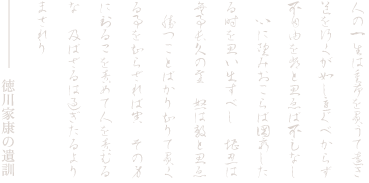 人の一生は重荷を負うて遠き
道を行くが如し 急ぐべからず
不自由を常と思えば不足なし
心に望みおこらば困窮した
る時を思い出すべし 堪忍は
無事長久の基 怒は敵と思え
勝つことばかり知りて負く
る事を知らざれば害 その身
に至る己を責めて人を責むる
な 及ばざるは過ぎたるより
まされり
徳川家康の遺訓